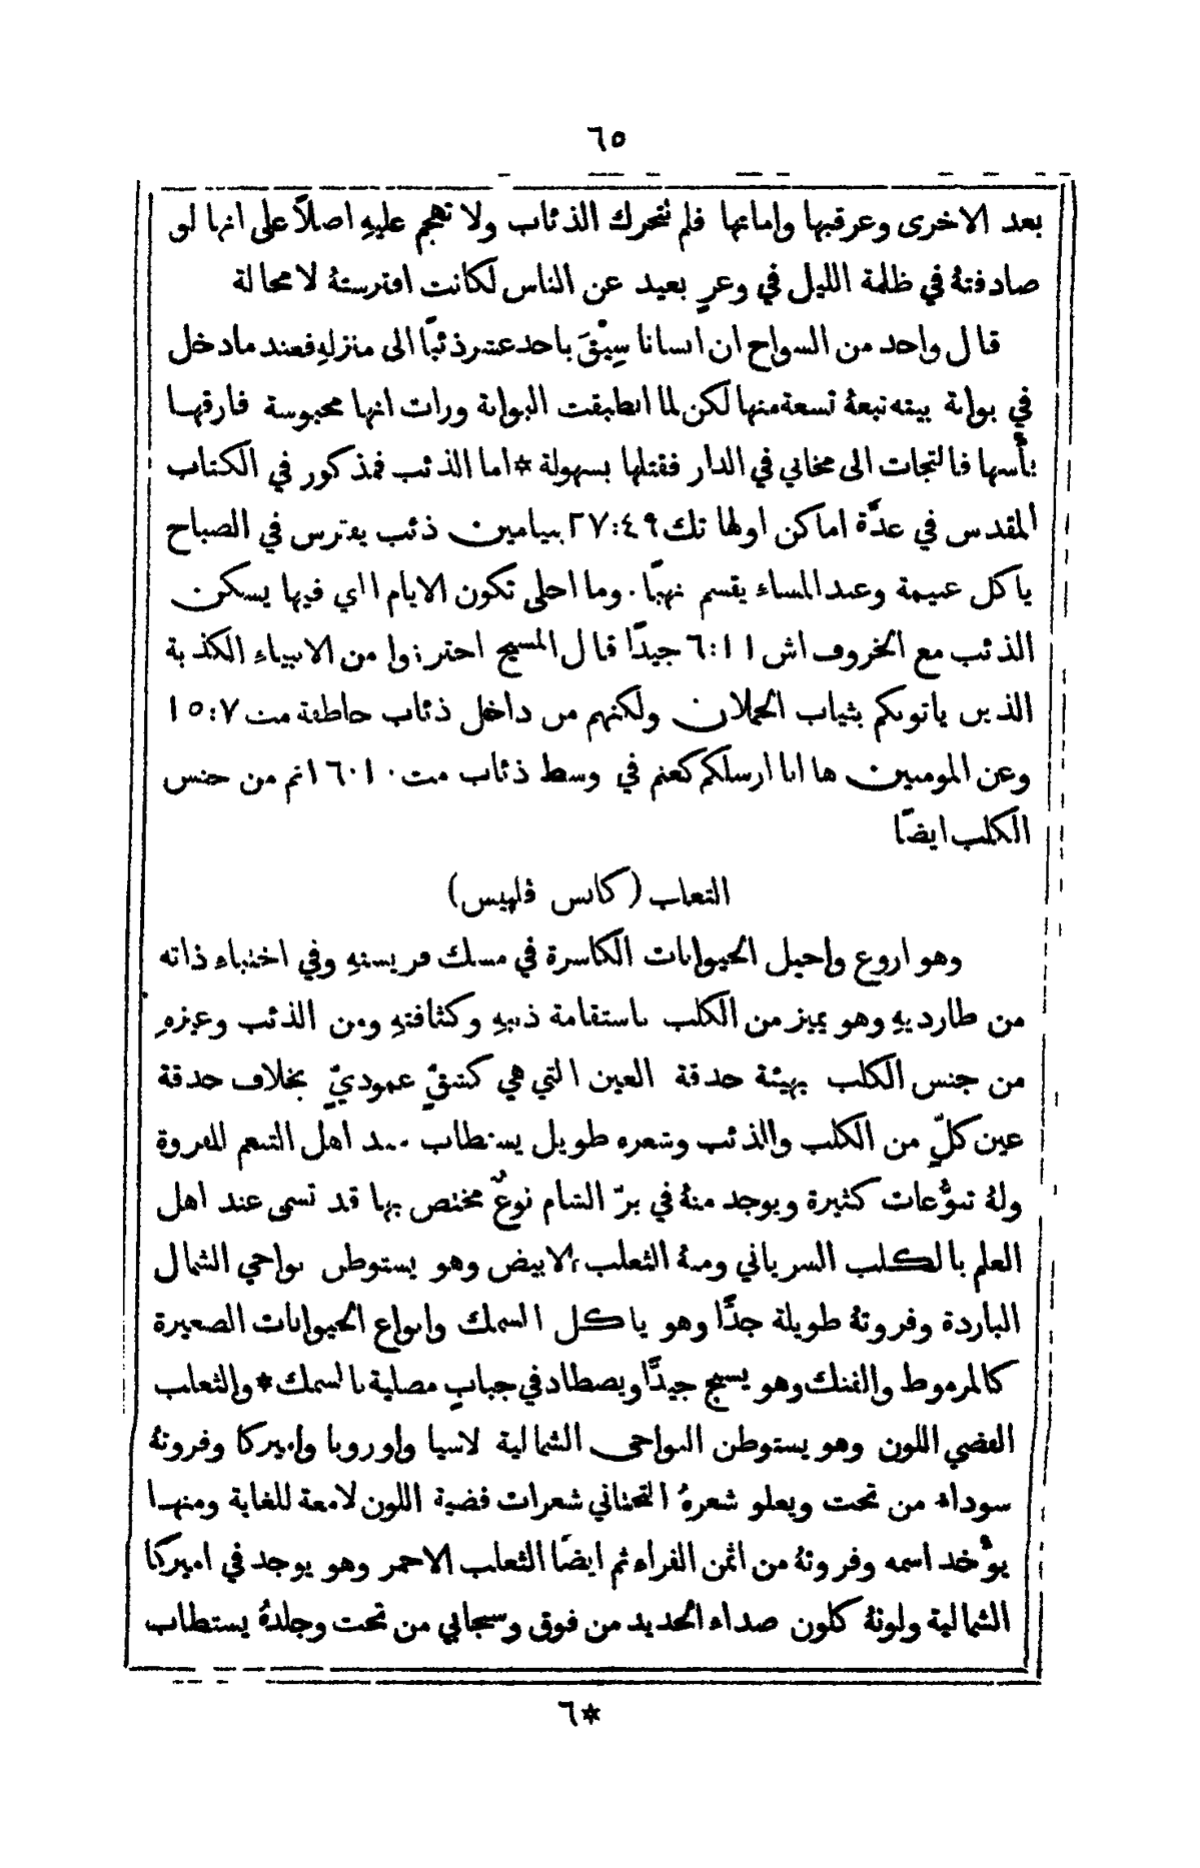 ٦٥
بعد الاخرى وعرقبها واماتها فلم تتحرك الذئاب ولا تهجم عليهِ اصلاً على انها لو
صادفتهُ في ظلمة الليل في وعرٍ بعيد عن الناس لكانت افترستهُ لا محالة
قال واحد من السواح ان انسانا سِيْقَ باحد عشر ذئبًا الى منزلهِ فعند ما دخل
في بوابة بيته تبعهُ تسعة منها لكن لما انطبقت البوابة ورات انها محبوسة فارقها
بأسها فالتجات الى مخابي في الدار فقتلها بسهولة * اما الذئب فمذكور في الكتاب
المقدس في عدَّة اماكن اولها تك ٤٩:٢٧ بنيامين ذئب يفترس في الصباح
ياكل غنيمة وعند المساء يقسم نهبًا. وما احلى تكون الايام التي فيها يسكن
الذئب مع الخروف اش ١١:٦ جيدًا قال المسيح احترزوا من الانبياء الكذبة
الذين ياتونكم بثياب الحملان ولكنهم من داخل ذئاب خاطفة مت ٧:١٥
وعن المومنين ها انا ارسلكم كغنم في وسط ذئاب مت ١٠:١٦ ثم من جنس
الكلب ايضًا
الثعلب (كانس ڤلپيس)
وهو اروغ واحيل الحيوانات الكاسرة في مسك فريستهِ وفي اختباء ذاته
من طارديهِ وهو يميز من الكلب باستقامة ذنبهِ وكثافتهِ ومن الذئب وغيرهِ
من جنس الكلب بهيئة حدقة العين التي هي كشقٍّ عموديٍّ بخلاف حدقة
عين كلٍّ من الكلب والذئب وشعره طويل يستطاب عند اهل التنعم للفروة
ولهُ تنوُّعات كثيرة ويوجد منهُ في برّ الشام نوعٌ مختص بها قد تسمى عند اهل
العلم بالكلب السرياني ومنهُ الثعلب الابيض وهو يستوطن نواحي الشمال
الباردة وفروتهُ طويلة جدًّا وهو ياكل السمك وانواع الحيوانات الصغيرة
كالمرموط والفنك وهو يسبح جيدًّا ويصطاد في جبابٍ مصلية بالسمك * والثعلب
الفضي اللون وهو يستوطن النواحي الشمالية لاسيا واوروبا واميركا وفروتهُ
سوداء من تحت ويعلو شعرهُ التحتاني شعرات فضية اللون لامعة للغاية ومنها
يوْخد اسمه وفروتهُ من اثمن الفراء ثم ايضًا الثعلب الاحمر وهو يوجد في اميركا
الشمالية ولونهُ كلون صداء الحديد من فوق وسنجابي من تحت وجلدهُ يستطاب
*٦